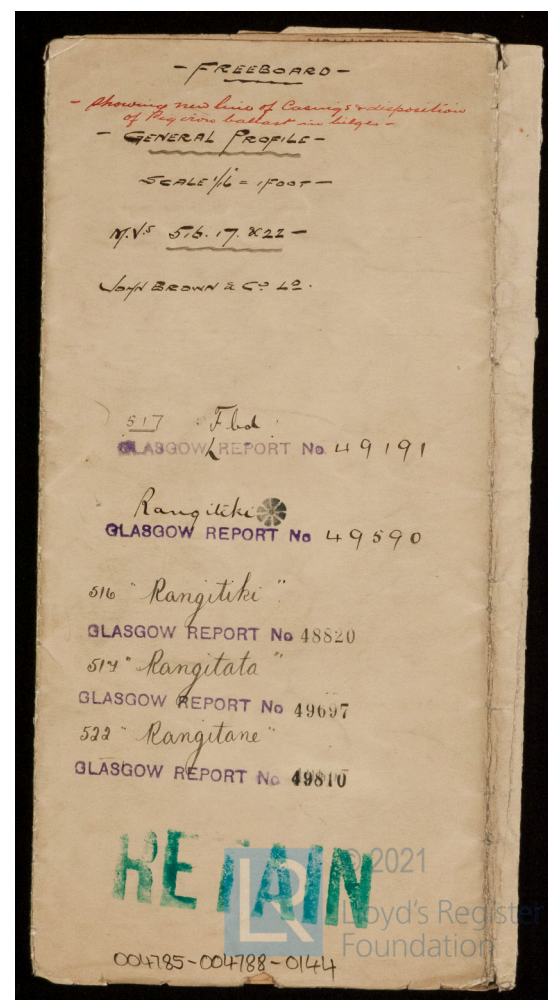 - FREEBOARD -
- Showing new line of Casings & disposition
of Pig iron ballast in bilges -
- GENERAL PROFILE -
SCALE 1/16 = 1 FOOT -
M.Vs 516. 17. & 22 -
JOHN BROWN & Co Ld.
517 Fbd
GLASGOW REPORT No 49191
Rangitiki
GLASGOW REPORT No 49590
516 "Rangitiki"
GLASGOW REPORT No 48820
517 "Rangitata"
GLASGOW REPORT No 49697
522 "Rangitane"
GLASGOW REPORT No 49810
RETAIN
© 2021
Lloyd's Register
Foundation
LR
004785-004788-0144